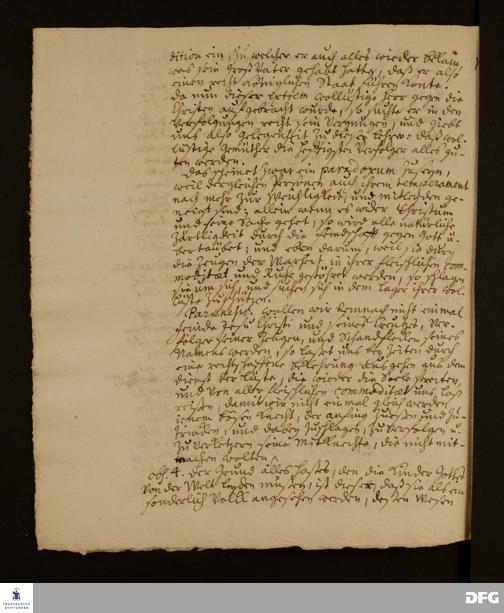 dition ein, zu welcher er auch alles wieder bekam,
was sein Groß Vater gehabt hatte, daß er also
einen recht Königlichen Staat führen konte.
Da nun dieser extrem wollüstige Herr gegen die
Christen aufgebracht wurde, so suchte er in den
Verfolgungen recht sein Vergnügen, und giebt
uns also Gelegenheit zu dieser Lehre: daß wol-
lüstige Gemüther die hefftigsten Verfolger alles Gu-
ten werden.
Das scheinet zwar ein paradoxum zu seyn,
weil dergleichen Personen auch ihrem temperament
nach mehr zur Weichligkeit und mitleyden ge-
neigt sind; allein wenn es wider Christum
und seine Sache gehet, so wird alle natürliche
Zärtligkeit durch die Feindschafft gegen Gott ü-
bertäubet; und eben darum, weil sie durch
die Zeugen der Warheit in ihrer fleischlichen com-
modität und Ruhe gestöret werden, so schlagen
sie um sich, und suchen sich in dem Lager ihrer Wol-
lüste zu schützen.
Paraenesis. Wollen wir demnach nicht einmal
Feinde Jesu Christi und seines Creutzes, Ver-
folger seiner Zeugen, und Schandflecken seines
Namens werden, so lasset uns bey Zeiten durch
eine rechtschaffene Bekehrung ausgehen aus dem
Dienst der Lüste, die wieder die Seele streiten,
und von aller fleischlichen commodität uns loß
reissen, damit wir nicht einmal gleich werden
jenem bösen Knecht, der anfing zu essen und zu
trincken, und dabey zu schlagen, zu verfolgen u.
zu verketzern seine Mitknechte, die nicht mit-
machen wolten.
obs. 4. Der Grund alles Hasses, den die Kinder Gottes
von der Welt leyden müssen, ist dieser, daß sie als ein
sonderlich Volck angesehen werden, dessen Wesen
FRANCKESCHE
STIFTUNGEN
DFG